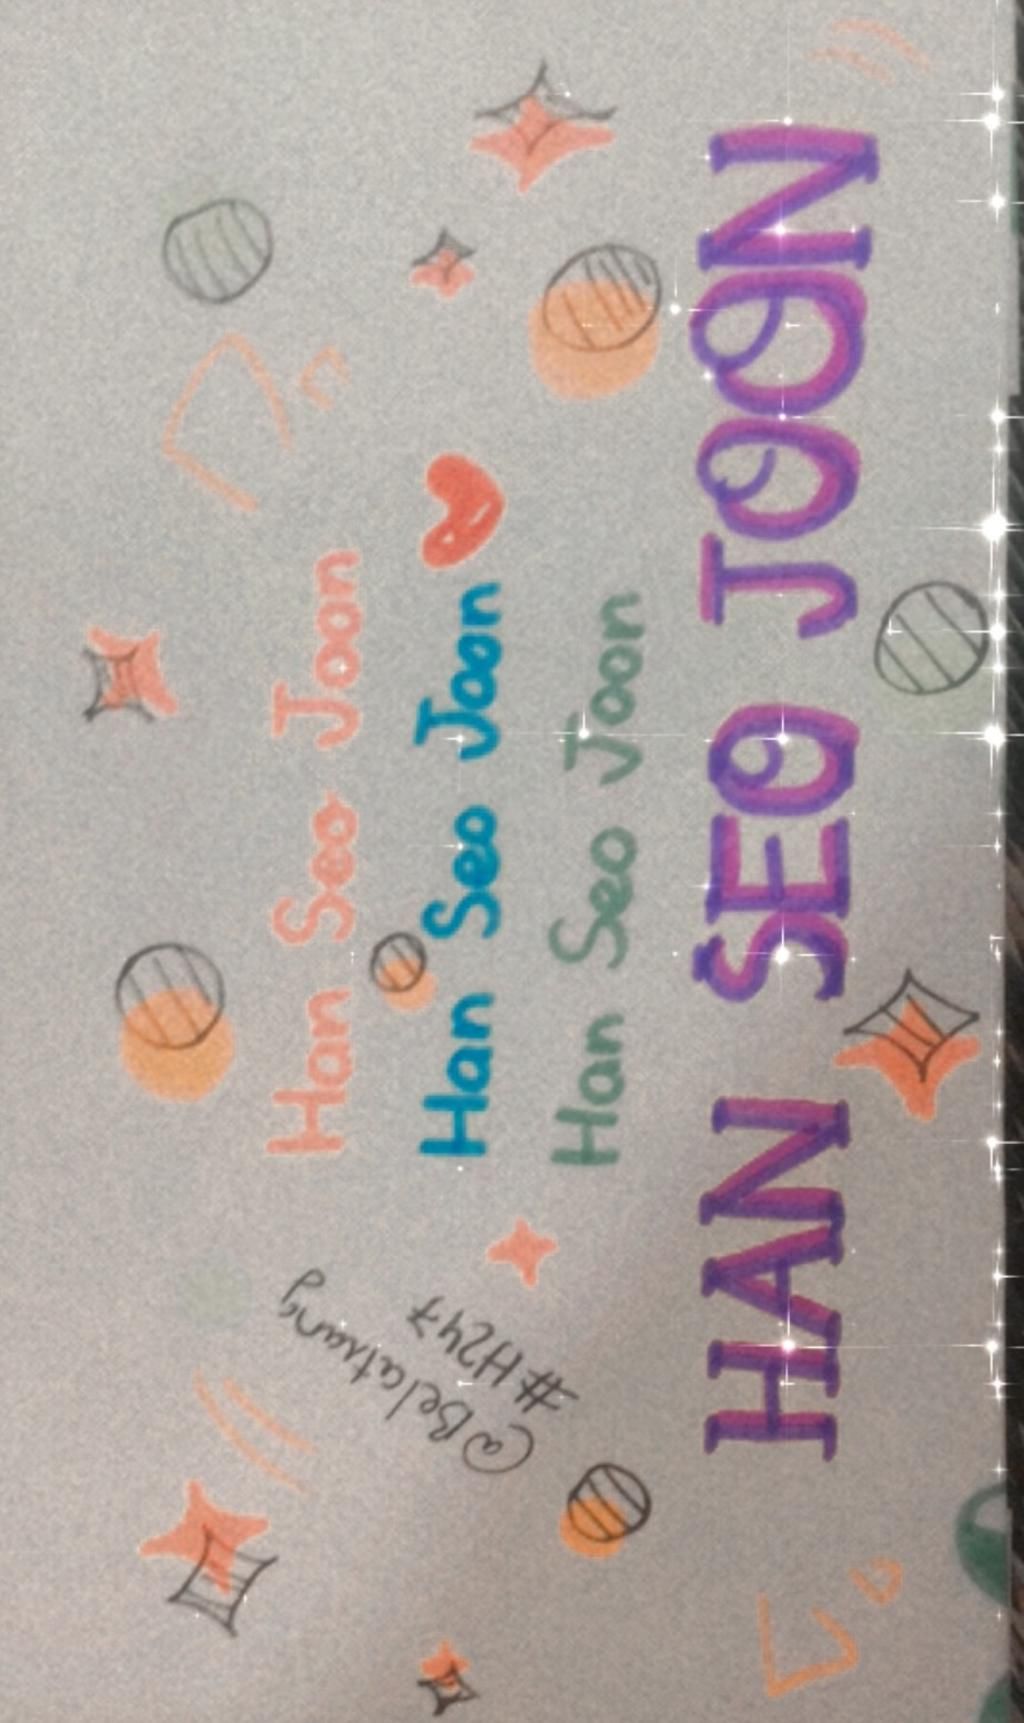 Han Seo Joon
Han Seo Joon
Han Seo Joon
HAN SEO JOON
@Belatrang
#H247